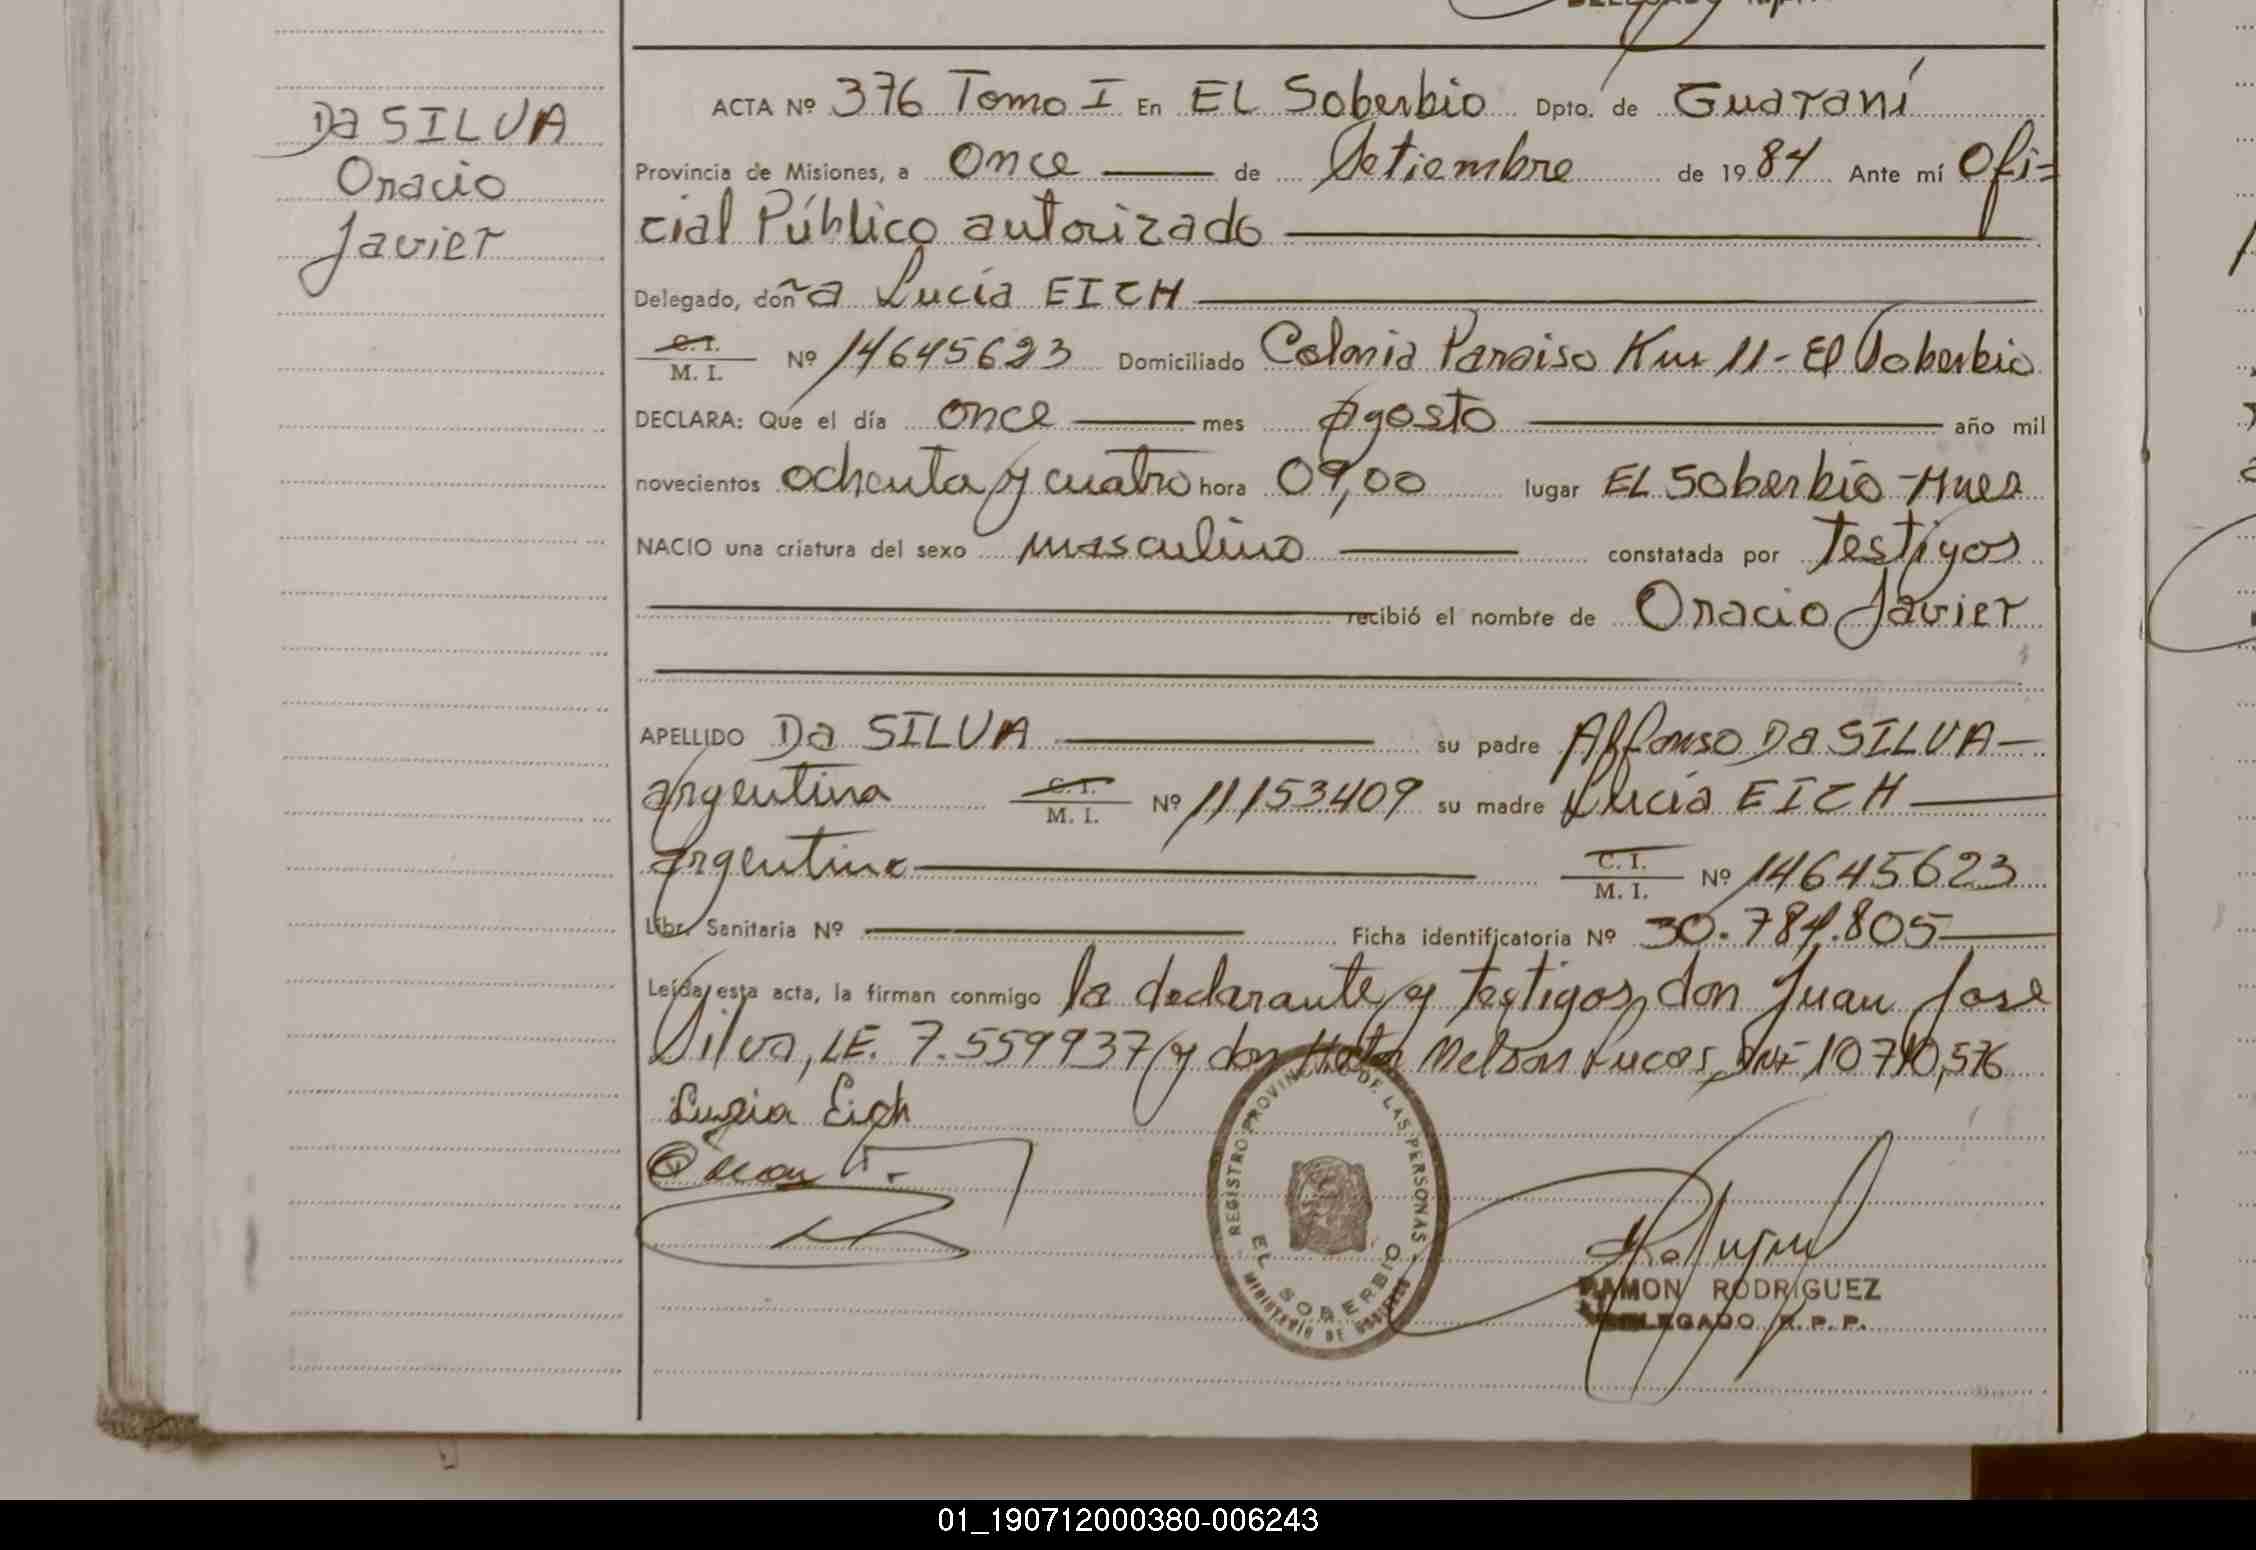 Da SILVA
Oracio
Javier
ACTA Nº 376 Tomo I En EL Soberbio Dpto. de Guaraní
Provincia de Misiones, a once de Setiembre de 1984 Ante mí Ofi=
cial Público autorizado
Delegado, doña Lucía EICH
C. I.
M. I. Nº 14645623 Domiciliado Colonia Paraiso Km 11 - El Soberbio
DECLARA: Que el día once mes agosto año mil
novecientos ochenta y cuatro hora 09,00 lugar EL Soberbio - Mnes
NACIO una criatura del sexo masculino constatada por testigos
recibió el nombre de Oracio Javier
APELLIDO Da SILVA su padre Affonso Da SILVA
argentina C. I.
M. I. Nº 11153409 su madre Lucía EICH
argentina C. I.
M. I. Nº 14645623
Libr. Sanitaria Nº Ficha identificatoria Nº 30.784.805
Leída esta acta, la firman conmigo la declarante y testigos, don Juan José
Silva, LE. 7.559937 y don Nelson Lucas
Lucia Eich
REGISTRO PROVINCIAL DE LAS PERSONAS
EL SOBERBIO
MINISTERIO DE
RAMON RODRIGUEZ
DELEGADO R. P. P.
01_190712000380-006243